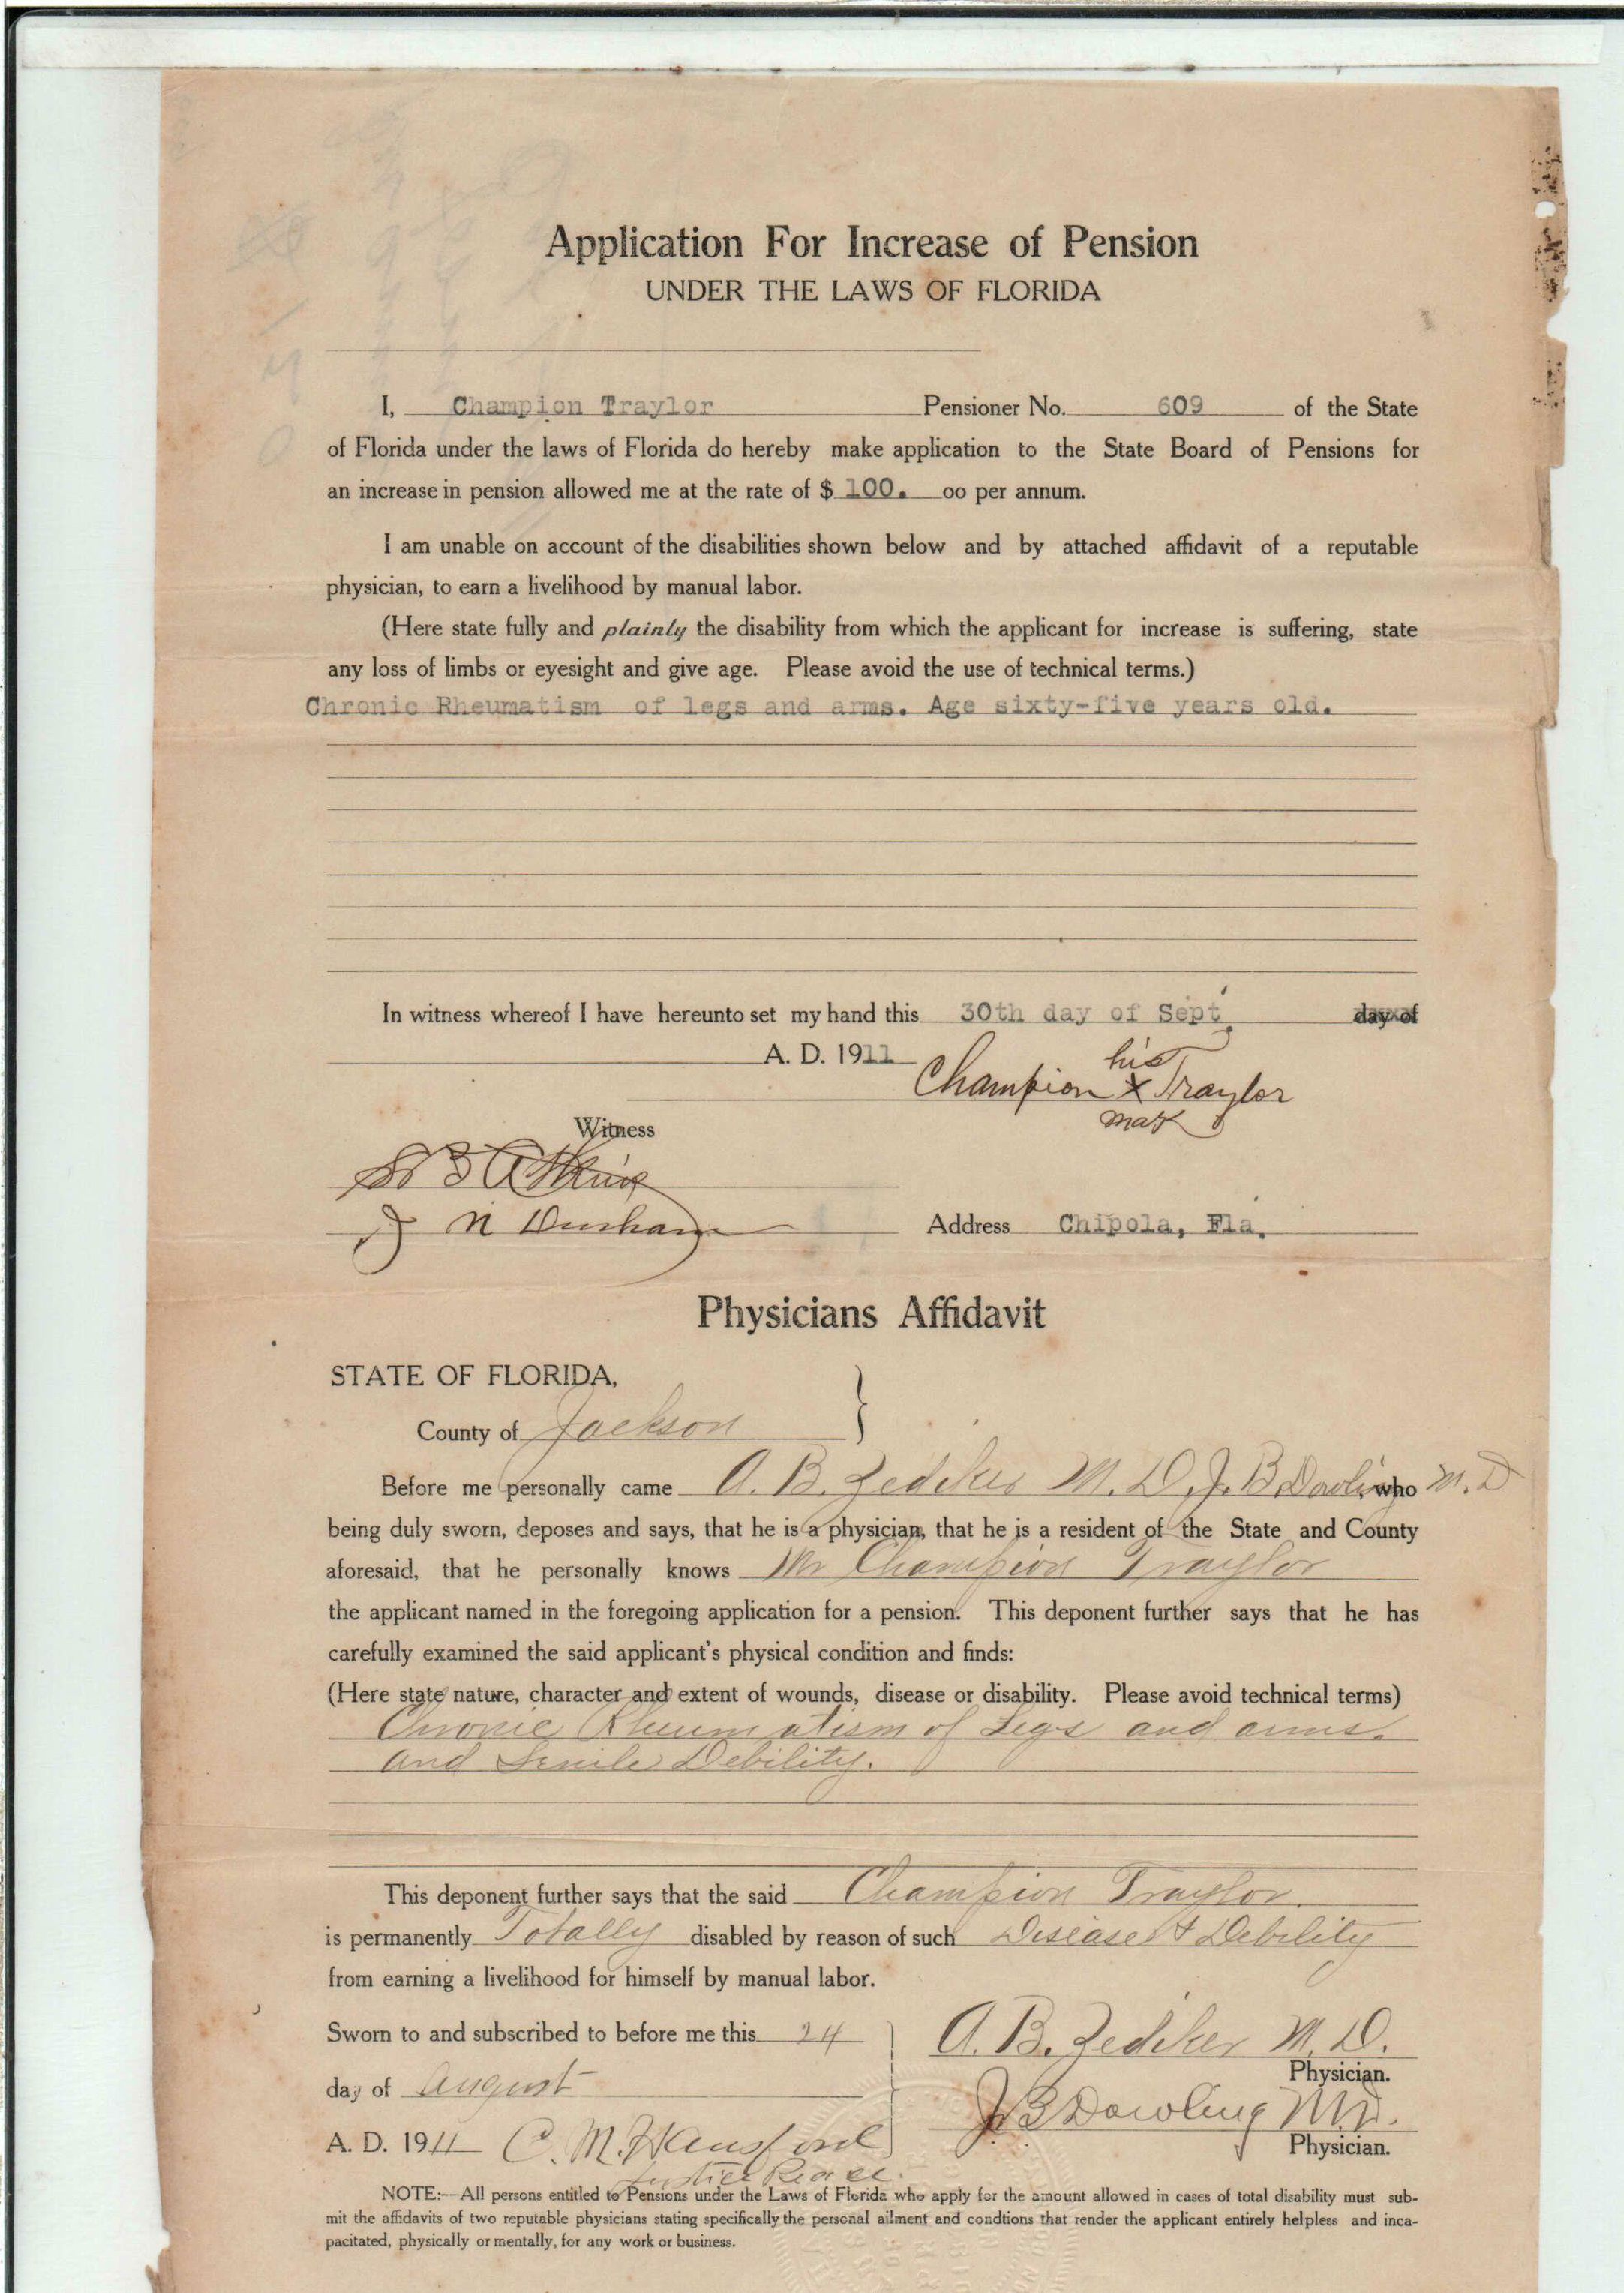 Application For Increase of Pension
UNDER THE LAWS OF FLORIDA
I, Champion Traylor Pensioner No. 609 of the State
of Florida under the laws of Florida do hereby make application to the State Board of Pensions for
an increase in pension allowed me at the rate of $ 100. oo per annum.
I am unable on account of the disabilities shown below and by attached affidavit of a reputable
physician, to earn a livelihood by manual labor.
(Here state fully and plainly the disability from which the applicant for increase is suffering, state
any loss of limbs or eyesight and give age. Please avoid the use of technical terms.)
Chronic Rheumatism of legs and arms. Age sixty-five years old.
In witness whereof I have hereunto set my hand this 30th day of Sept. day of
A. D. 1911
his
Champion X Traylor
mark
Witness
J N Dunham
Address Chipola, Fla.
Physicians Affidavit
STATE OF FLORIDA,
County of Jackson
Before me personally came A. B. Zediker M. D, J. B Dowling, who M. D
being duly sworn, deposes and says, that he is a physician, that he is a resident of the State and County
aforesaid, that he personally knows Mr Champion Traylor
the applicant named in the foregoing application for a pension. This deponent further says that he has
carefully examined the said applicant's physical condition and finds:
(Here state nature, character and extent of wounds, disease or disability. Please avoid technical terms)
Chronic Rheumatism of Legs and arms.
and Senile Debility.
This deponent further says that the said Champion Traylor.
is permanently Totally disabled by reason of such Disease & Debility
from earning a livelihood for himself by manual labor.
Sworn to and subscribed to before me this 24
day of August
A. D. 1911 C. M. Hansford
Justice Peace.
A. B. Zediker M. D.
Physician.
J B Dowling M.D.
Physician.
NOTE:—All persons entitled to Pensions under the Laws of Florida who apply for the amount allowed in cases of total disability must sub-
mit the affidavits of two reputable physicians stating specifically the personal ailment and condtions that render the applicant entirely helpless and inca-
pacitated, physically or mentally, for any work or business.